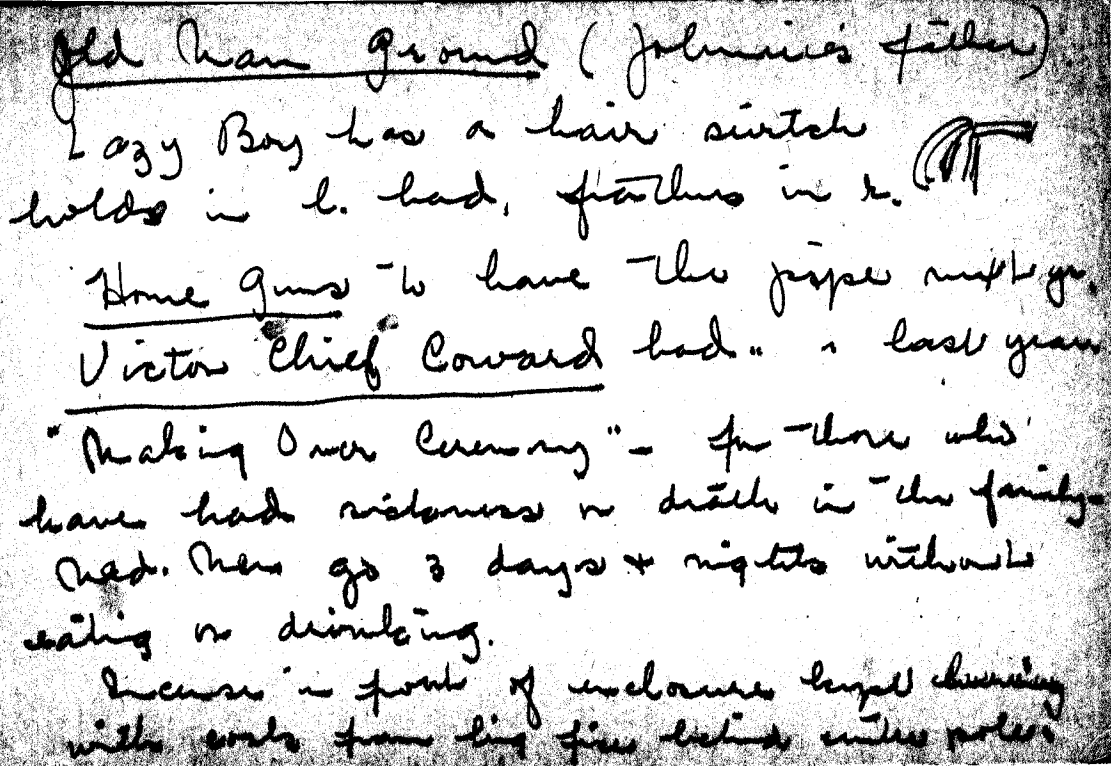 Old Man Ground (Johnnie's father)
Lazy Boy has a hair switch
holds in l. hand, feathers in r.
Home Guns to have the pipe next yr.
Victor Chief Coward had " " last year
"Making Over Ceremony" – for those who
have had sickness or death in the family.
Med. Men go 3 days & nights without
eating or drinking.
Incense in front of enclosure kept burning
with coals from big fire behind center pole.